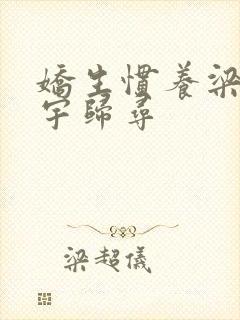 嬌生慣養梁
宇歸尋
梁超儀